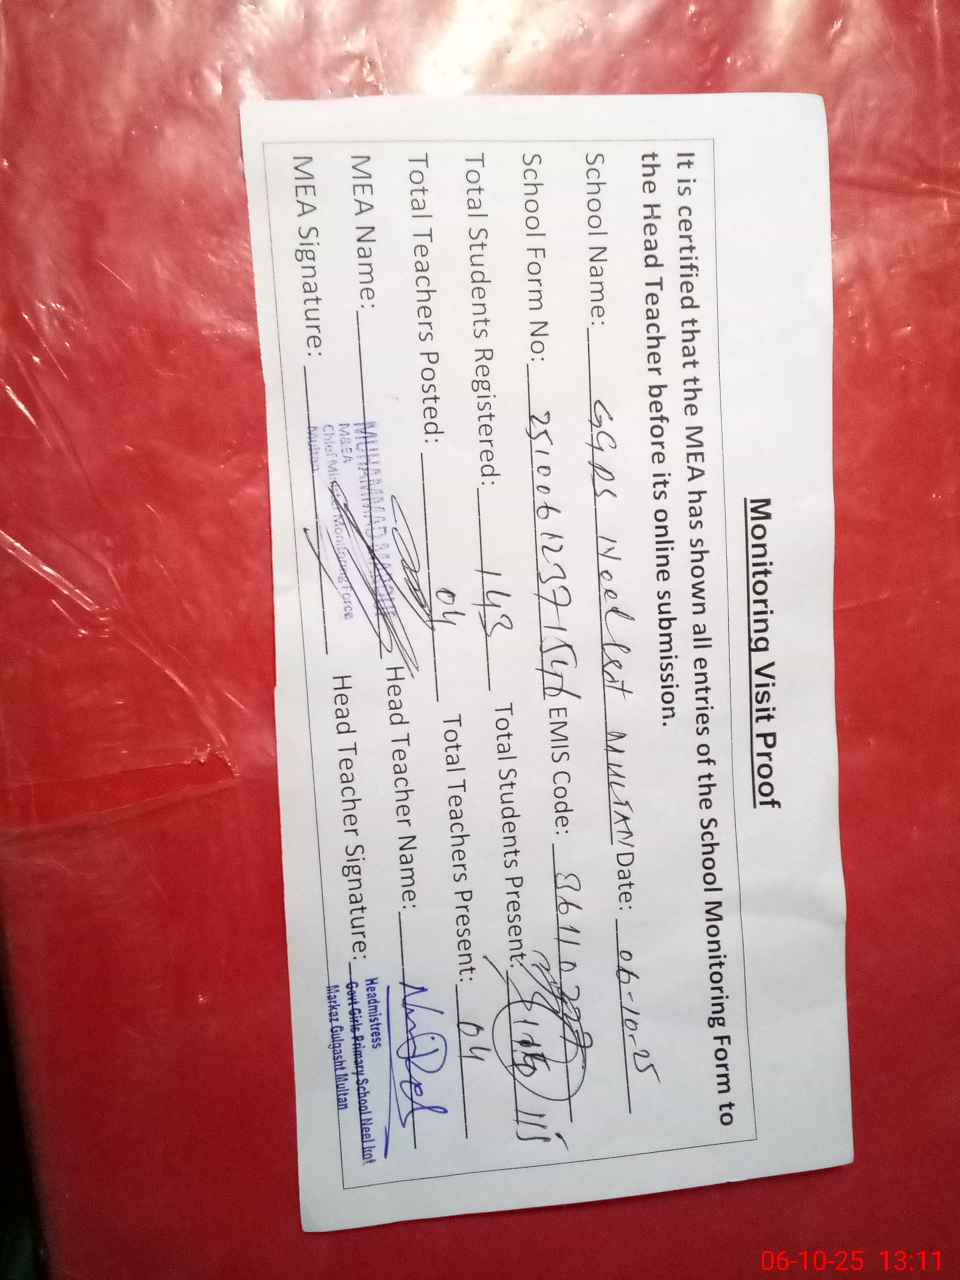 Monitoring Visit Proof
It is certified that the MEA has shown all entries of the School Monitoring Form to
the Head Teacher before its online submission.
School Name: GGPS Neel MULTAN Date: 06-10-25
School Form No: EMIS Code:
Total Students Registered: 143 Total Students Present: 115
Total Teachers Posted: 04 Total Teachers Present: 04
MEA Name: MUHAMMAD Head Teacher Name:
M&EA
Chief Monitoring Force
Multan
MEA Signature: Head Teacher Signature:
Headmistress
Govt Girls Primary School Neel kot
Markaz Gulgasht Multan
06-10-25 13:11